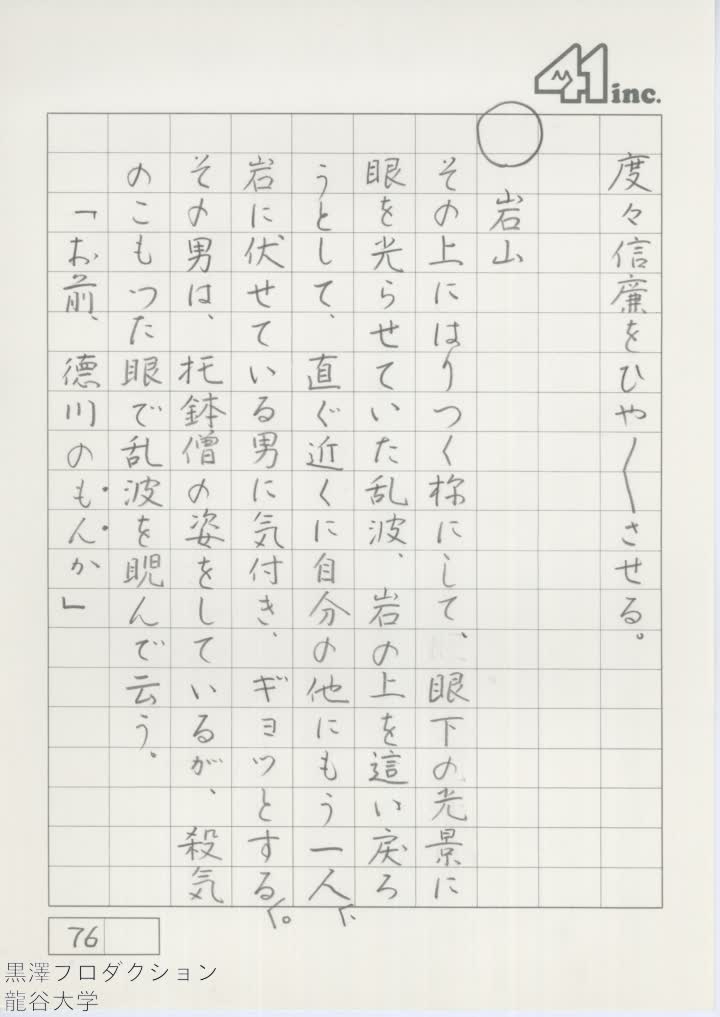 41 inc.
度々信廉をひや〱させる。
○ 岩山
その上にはりつく様にして、眼下の光景に
眼を光らせていた乱波、岩の上を這い戻ろ
うとして、直ぐ近くに自分の他にもう一人、
岩に伏せている男に気付き、ギョッとする。
その男は、托鉢僧の姿をしているが、殺気
のこもつた眼で乱波を睨んで云う。
「お前、徳川のもんか」
76
黒澤プロダクション
龍谷大学